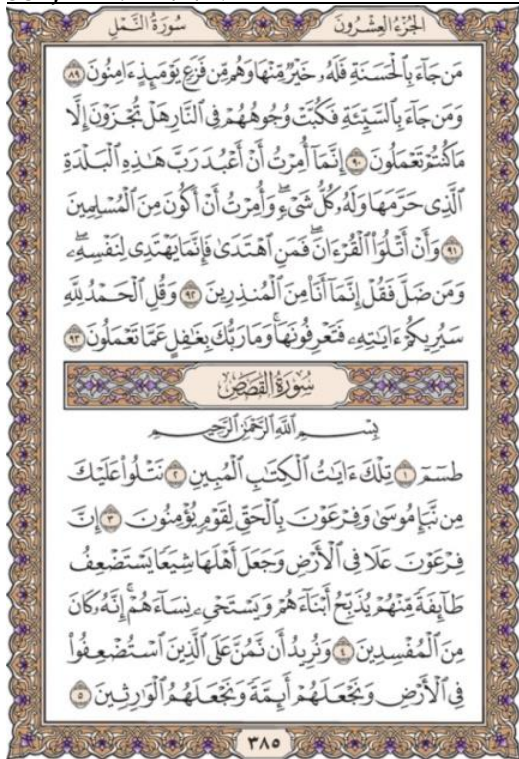 الجزء العشرون سورة النمل
مَن جَآءَ بِٱلْحَسَنَةِ فَلَهُۥ خَيْرٌ مِّنْهَا وَهُم مِّن فَزَعٍ يَوْمَئِذٍ ءَامِنُونَ ٨٩
وَمَن جَآءَ بِٱلسَّيِّئَةِ فَكُبَّتْ وُجُوهُهُمْ فِى ٱلنَّارِ هَلْ تُجْزَوْنَ إِلَّا
مَا كُنتُمْ تَعْمَلُونَ ٩٠ إِنَّمَآ أُمِرْتُ أَنْ أَعْبُدَ رَبَّ هَـٰذِهِ ٱلْبَلْدَةِ
ٱلَّذِى حَرَّمَهَا وَلَهُۥ كُلُّ شَىْءٍ ۖ وَأُمِرْتُ أَنْ أَكُونَ مِنَ ٱلْمُسْلِمِينَ
٩١ وَأَنْ أَتْلُوَا۟ ٱلْقُرْءَانَ ۖ فَمَنِ ٱهْتَدَىٰ فَإِنَّمَا يَهْتَدِى لِنَفْسِهِۦ ۖ
وَمَن ضَلَّ فَقُلْ إِنَّمَآ أَنَا۠ مِنَ ٱلْمُنذِرِينَ ٩٢ وَقُلِ ٱلْحَمْدُ لِلَّهِ
سَيُرِيكُمْ ءَايَـٰتِهِۦ فَتَعْرِفُونَهَا ۚ وَمَا رَبُّكَ بِغَـٰفِلٍ عَمَّا تَعْمَلُونَ ٩٣
سُورَةُ القَصَصِ
بِسْمِ ٱللَّهِ ٱلرَّحْمَـٰنِ ٱلرَّحِيمِ
طسٓمٓ ١ تِلْكَ ءَايَـٰتُ ٱلْكِتَـٰبِ ٱلْمُبِينِ ٢ نَتْلُوا۟ عَلَيْكَ
مِن نَّبَإِ مُوسَىٰ وَفِرْعَوْنَ بِٱلْحَقِّ لِقَوْمٍ يُؤْمِنُونَ ٣ إِنَّ
فِرْعَوْنَ عَلَا فِى ٱلْأَرْضِ وَجَعَلَ أَهْلَهَا شِيَعًا يَسْتَضْعِفُ
طَآئِفَةً مِّنْهُمْ يُذَبِّحُ أَبْنَآءَهُمْ وَيَسْتَحْىِۦ نِسَآءَهُمْ ۚ إِنَّهُۥ كَانَ
مِنَ ٱلْمُفْسِدِينَ ٤ وَنُرِيدُ أَن نَّمُنَّ عَلَى ٱلَّذِينَ ٱسْتُضْعِفُوا۟
فِى ٱلْأَرْضِ وَنَجْعَلَهُمْ أَئِمَّةً وَنَجْعَلَهُمُ ٱلْوَٰرِثِينَ ٥
٣٨٥